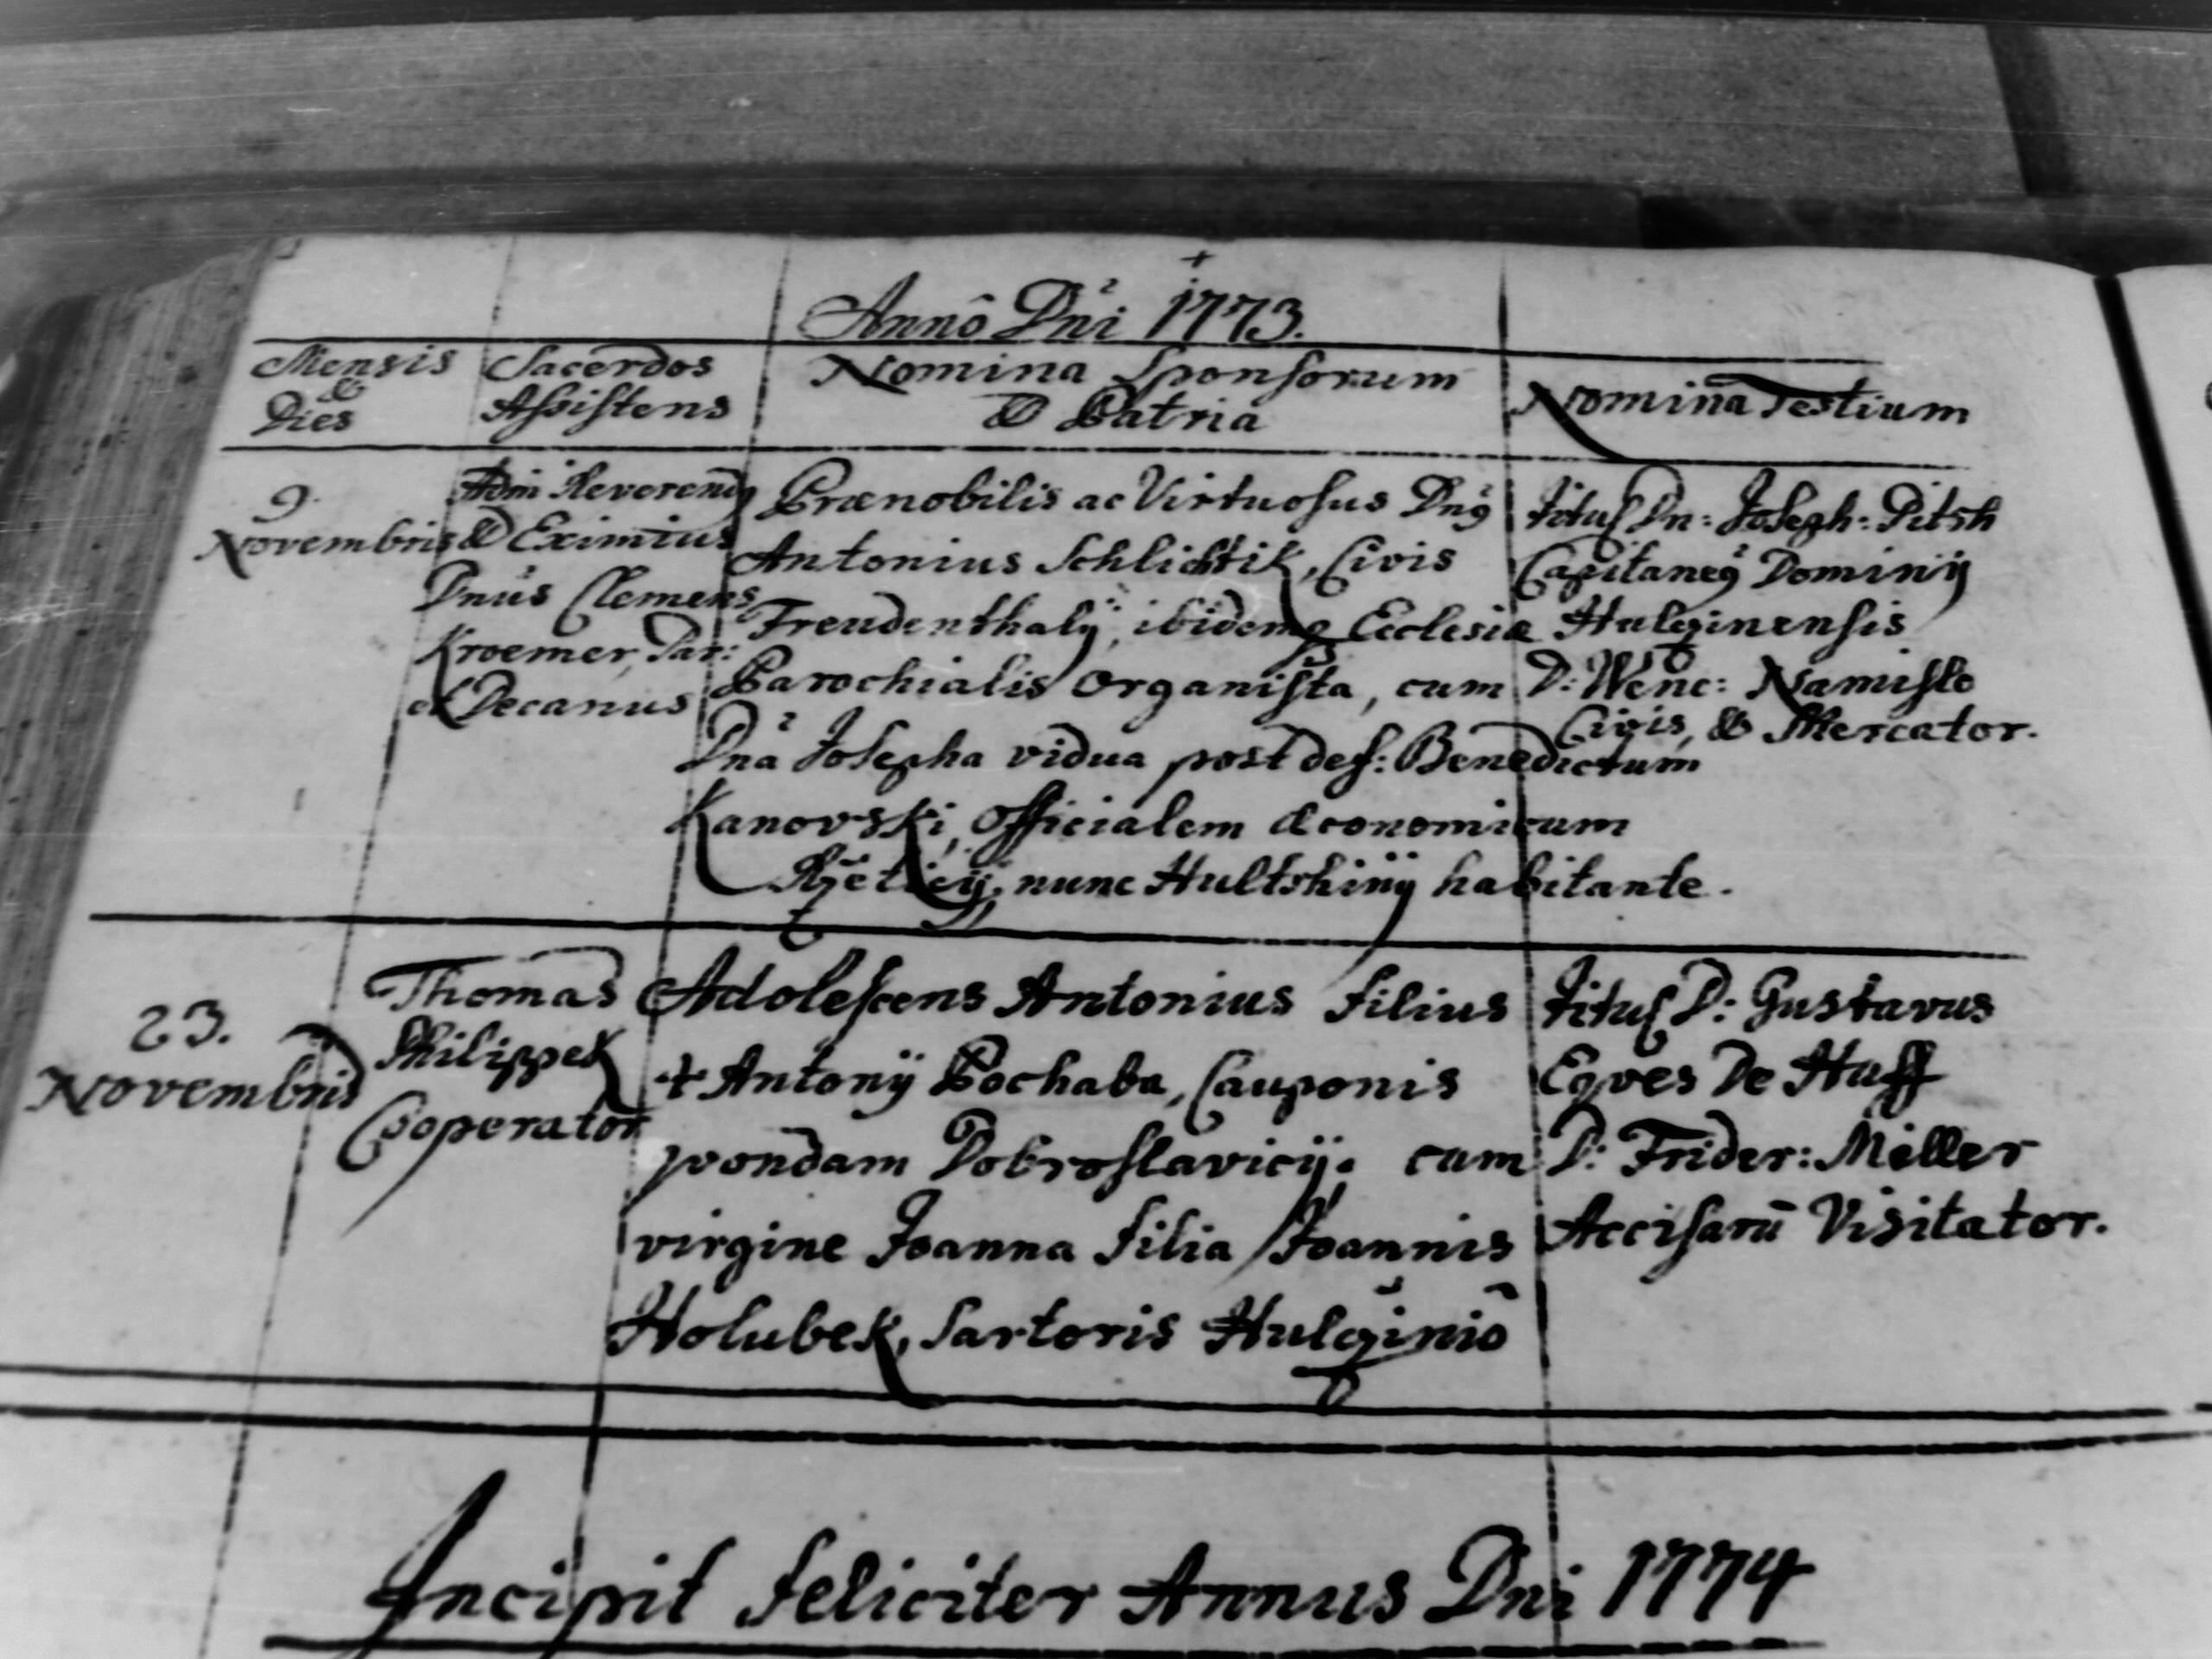 Annô Dni 1773.
Mensis & Dies
Sacerdos Assistens
Nomina Sponsorum & Patria
Nomina Testium
9. Novembris
Adm Reverendq
& Eximius
Dnus Clemens
Kroemer, Par:
et Decanus
Prænobilis ac Virtuosus Dnq
Antonius Schlichtik, Civis
Freudenthalij, ibidemq Ecclesiæ
Parochialis Organista, cum
Dna Josepha vidua post def: Benedictum
Kanovski, Officialem œconomicum
nunc Hultshinij habitante.
Dn: Joseph: Pitsh
Capitaneq Dominij
Hulcinensis
D: Wenc: Namislo
Civis, & Mercator.
23.
Novembris
Thomas
Philippek
Cooperator
Adolescens Antonius filius
+ Antonij Pochaba, Cauponis
qvondam Dobroslavicij. cum
virgine Joanna filia Joannis
Holubek, Sartoris Hulcinio
D: Gustavus
Eqves De Huff
D: Frider: Miller
Accisarū Visitator.
Incipit feliciter Annus Dni 1774